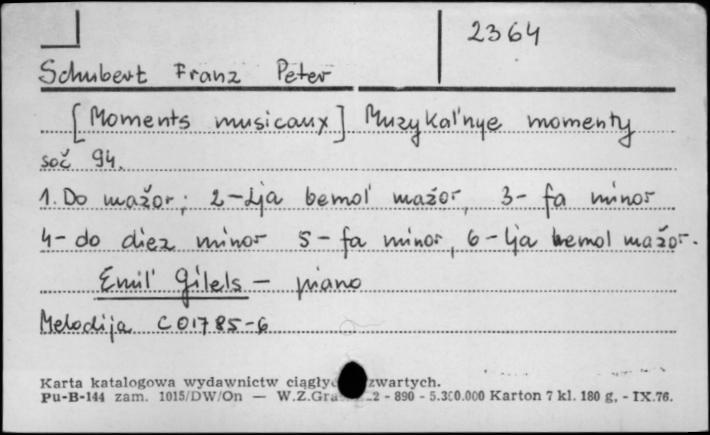 2364
Schubert Franz Peter
[Moments musicaux] Muzykal'nye momenty
soč 94.
1. Do mažor; 2-Lja bemol' mažor, 3- fa minor
4- do diez minor 5- fa minor, 6- lja bemol mažor.
Emil' Gilels - piano
Melodija C 01785-6
Karta katalogowa wydawnictw zwartych.
Pu-B-144 zam. 1015/DW/On — 2 - 890 - 5.300.000 Karton 7 kl. 180 g, - IX.76.